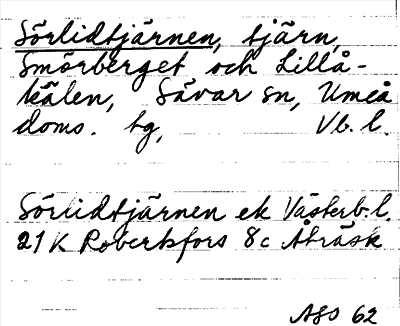 Sörlidtjärnen, tjärn,
Smörberget och Lillå-
kälen, Sävar sn, Umeå
doms. tg, Vb. l.
Sörlidtjärnen ek Västerb. l.
21 K Robertsfors 8c Åträsk
ASO 62